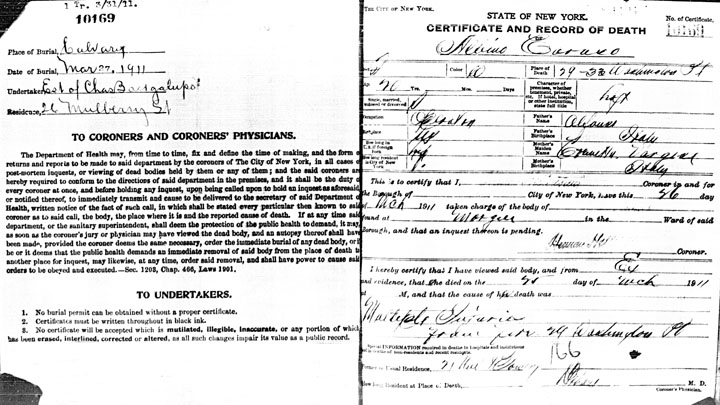 1 Tr. 3/31/22.
10169
Place of Burial, Calvary
Date of Burial, Mar 27, 1911
Undertaker, Est of Chas Bacigalupo
Residence, 26 Mulberry St
TO CORONERS AND CORONERS' PHYSICIANS.
The Department of Health may, from time to time, fix and define the time of making, and the form of
returns and reports to be made to said department by the coroners of The City of New York, in all cases of
post-mortem inquests, or viewing of dead bodies held by them or any of them; and the said coroners are
hereby required to conform to the directions of said department in the premises, and it shall be the duty of
every coroner at once, and before holding any inquest, upon being called upon to hold an inquest as aforesaid,
or notified thereof, to immediately transmit and cause to be delivered to the secretary of said Department of
Health, written notice of the fact of such call, in which shall be stated every particular then known to said
coroner as to said call, the body, the place where it is and the reported cause of death. If at any time said
department, or the sanitary superintendent, shall deem the protection of the public health to demand, it may,
as soon as the coroner's jury or physician may have viewed the dead body, and an autopsy thereof shall have
been made, provided the coroner deems the same necessary, order the immediate burial of any dead body, or if
he or it deems that the public health demands an immediate removal of said body from the place of death to
another place for inquest, may likewise, at any time, order said removal, and shall have power to cause said
orders to be obeyed and executed.—Sec. 1203, Chap. 466, Laws 1901.
TO UNDERTAKERS.
1. No burial permit can be obtained without a proper certificate.
2. Certificates must be written throughout in black ink.
3. No certificate will be accepted which is mutilated, illegible, inaccurate, or any portion of which
has been erased, interlined, corrected or altered, as all such changes impair its value as a public record.
THE CITY OF NEW YORK.
STATE OF NEW YORK.
No. of Certificate,
CERTIFICATE AND RECORD OF DEATH
10169
Caruso
Color W
Place of Death 29-33 Washington Pl
26 Yrs. Mos. Days
Character of premises, whether tenement, private, etc. If hospital, or other institution, state full title
Loft
Single, married, widowed or divorced
Occupation Operator
Father's Name
Birthplace Italy
Father's Birthplace Italy
How long in U.S. if of foreign birth
Mother's Maiden Name
How long resident in City of New York
Mother's Birthplace Italy
This is to certify that I, Coroner in and for
the Borough of City of New York, have this 26 day
of Mch 1911 taken charge of the body of
found at Morgue in the Ward of said
Borough, and that an inquest thereon is pending.
Coroner.
I hereby certify that I have viewed said body, and from Ex
and evidence, that she died on the 25 day of Mch 1911
at M, and that the cause of her death was
Multiple Injuries
from 29 Washington Pl
Special INFORMATION required in deaths in hospitals and institutions
and in deaths of non-residents and recent residents.
166
Former or Usual Residence,
How long Resident at Place of Death,
M. D.
Coroner's Physician.